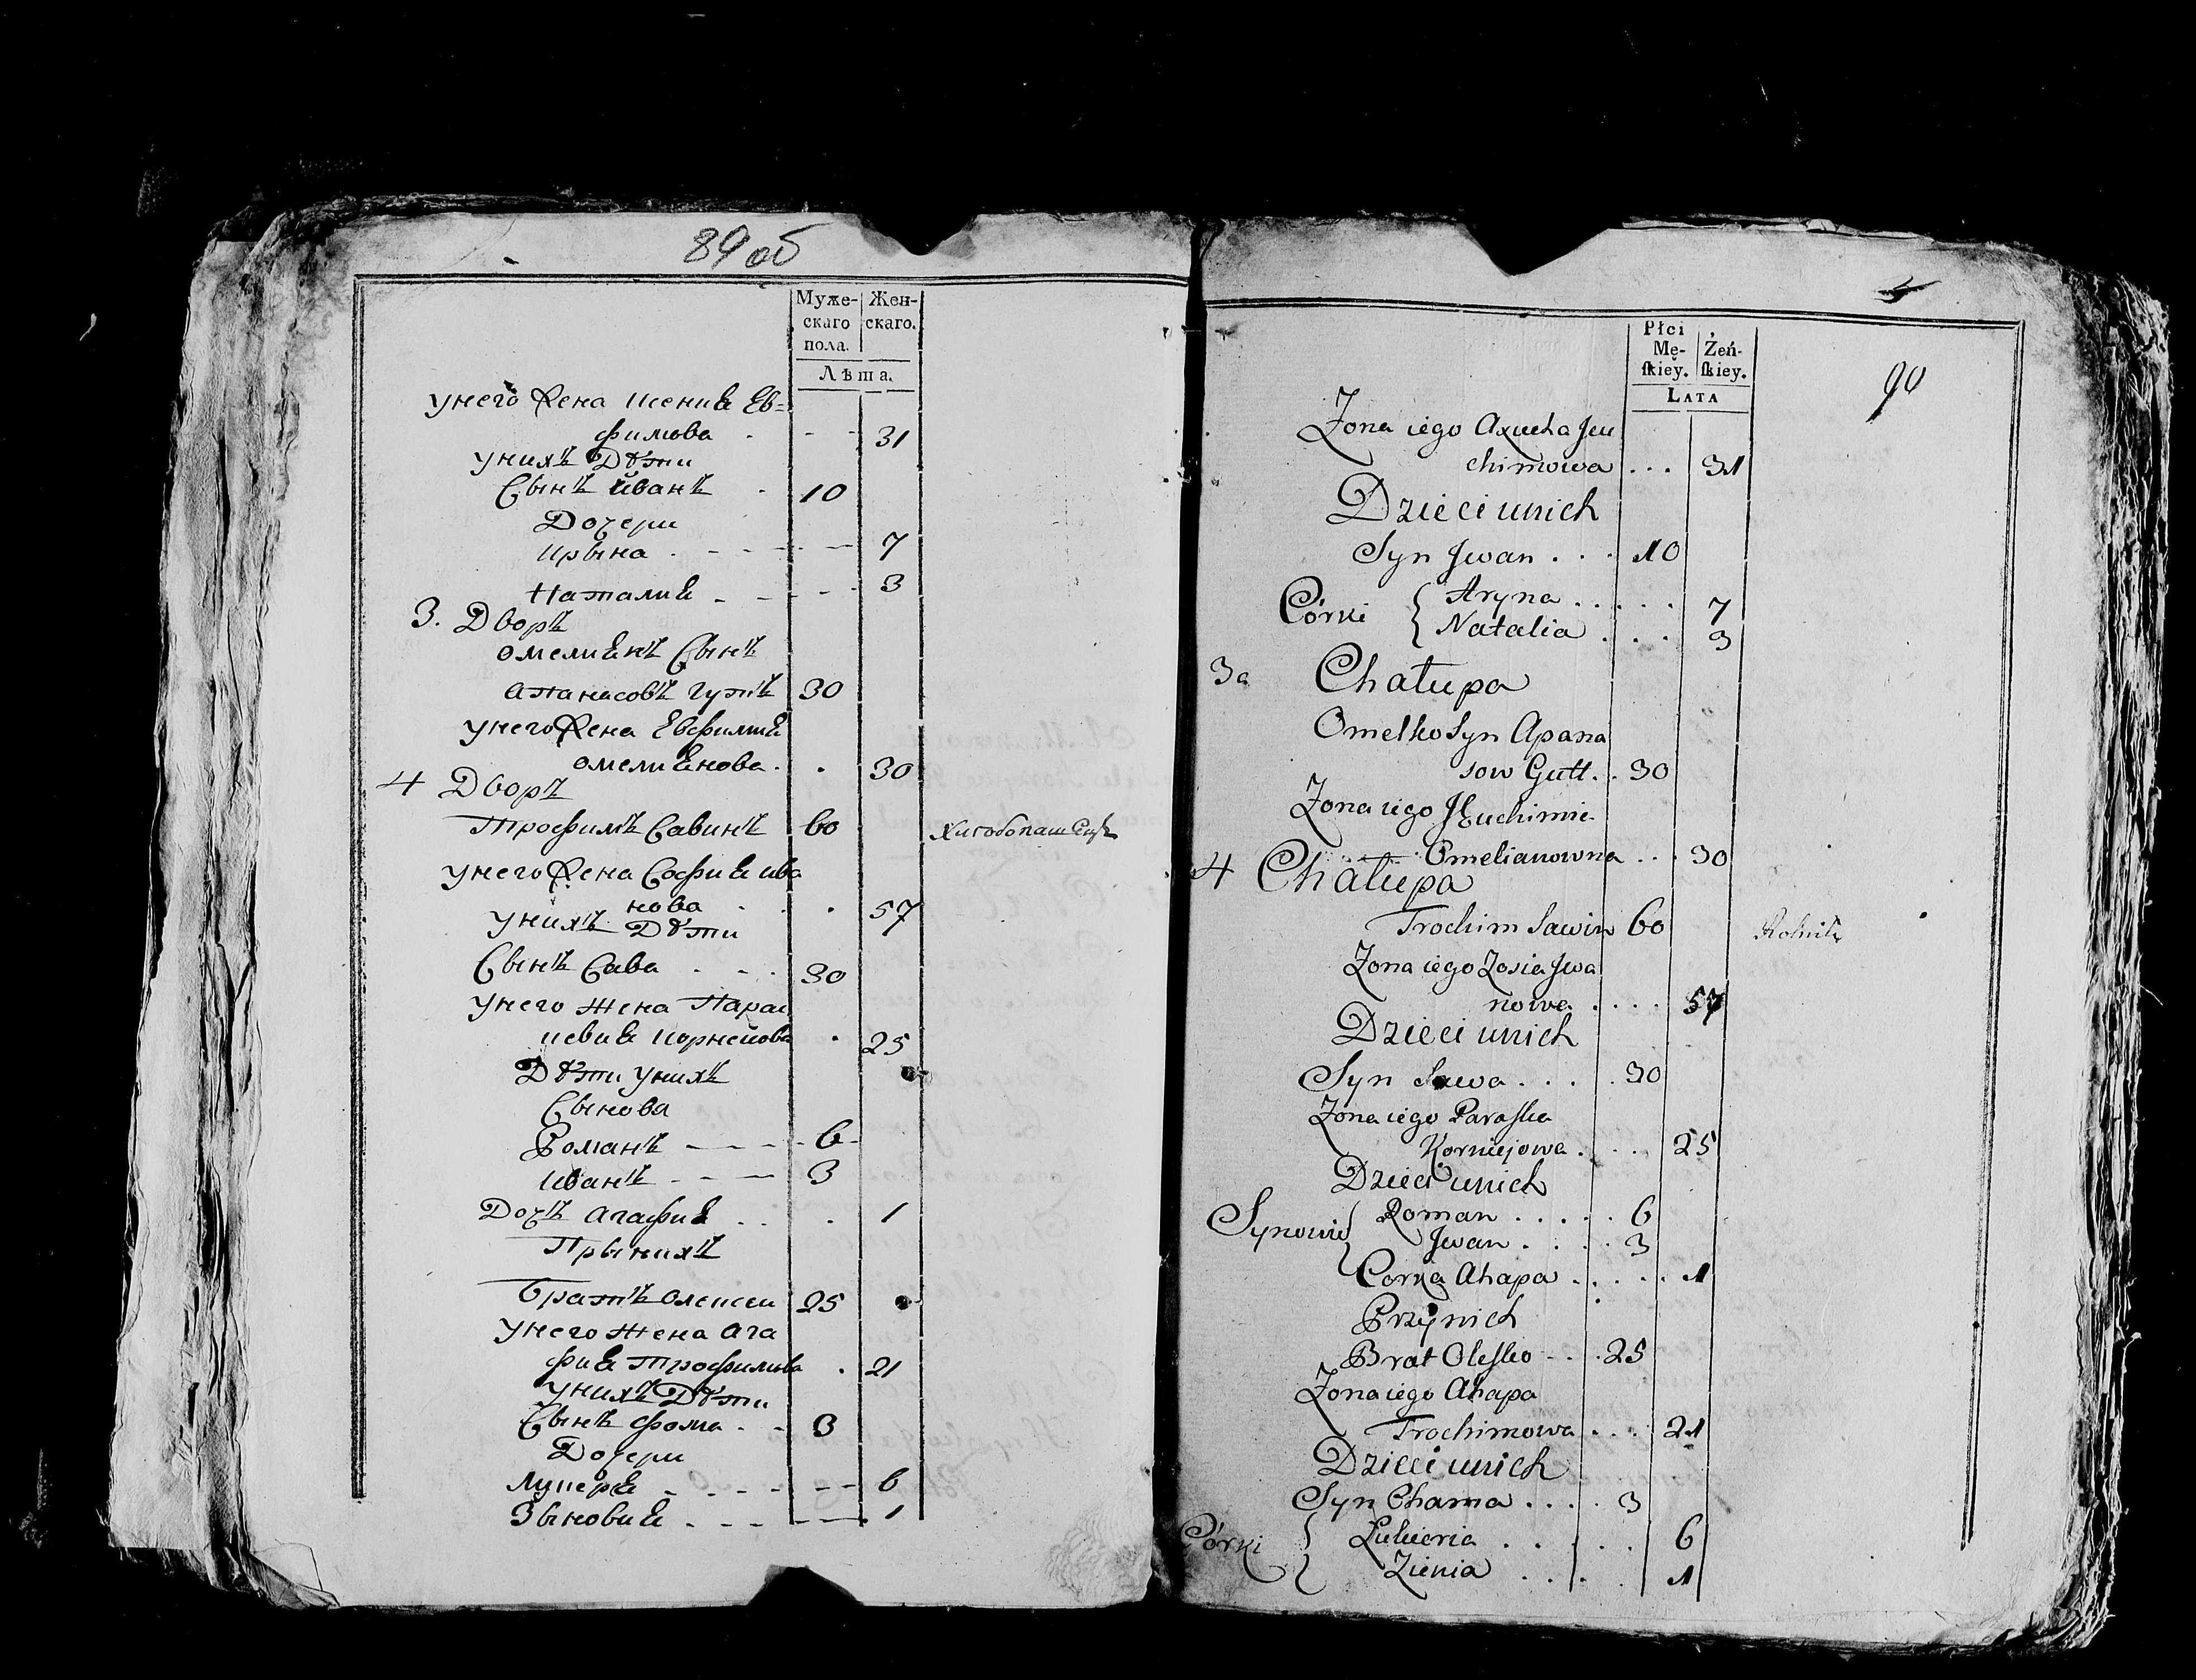 89 об
Муже-
скаго
пола.
Жен-
скаго.
Лѣта.
унего жена Ксения Ев=
фимова 31
унихъ Дѣти
Сынъ Иванъ 10
Дочери
Ирына 7
Наталия 3
3. Дворъ
Омелиянъ Сынъ
Атанасовъ Гутъ 30
унего жена Евфимия
Омелиянова 30
4 Дворъ
Трофимъ Савинъ 60 Хлебопашецъ
унего жена София Ива
нова 57
унихъ Дѣти
Сынъ Сава 30
унего жена Парас
кевия Корнейова 25
Дѣти унихъ
Сынова
Романъ 6
Иванъ 3
Дочъ Агафия 1
Прынихъ
Братъ Олексеи 25
унего жена Ага
фия Трофимова 21
унихъ Дѣти
Сынъ Фома 3
Дочери
Лукерия 6
Зыновия 1
90
Płci
Mę-
skiey.
Żeń-
skiey.
Lata
Zona iego Axucha Jeu
chimowa . . . 31
Dzieci unich
Syn Jwan . . . 10
Córki { Aryna . . . . . 7
Natalia . . . . 3
3a Chałupa
Omelko Syn Apana
sow Gutt . . 30
Zona iego Jeuchimie
Omelianowna . . . 30
4 Chałupa
Trochim Sawin 60 Rolnik
Zona iego Zosia Jwa
nowa . . . . 57
Dzieci unich
Syn Sawa . . . . 30
Zona iego Paraska
Korniejowa . . . . 25
Dzieci unich
Synowie { Roman . . . . . 6
Jwan . . . . 3
Corka Ahapa . . . . . 1
Przynich
Brat Olesko . . . 25
Zona iego Ahapa
Trochimowa . . . . 21
Dzieci unich
Syn Choma . . . . 3
Córki { Lukieria . . . . . . 6
Zienia . . . . 1